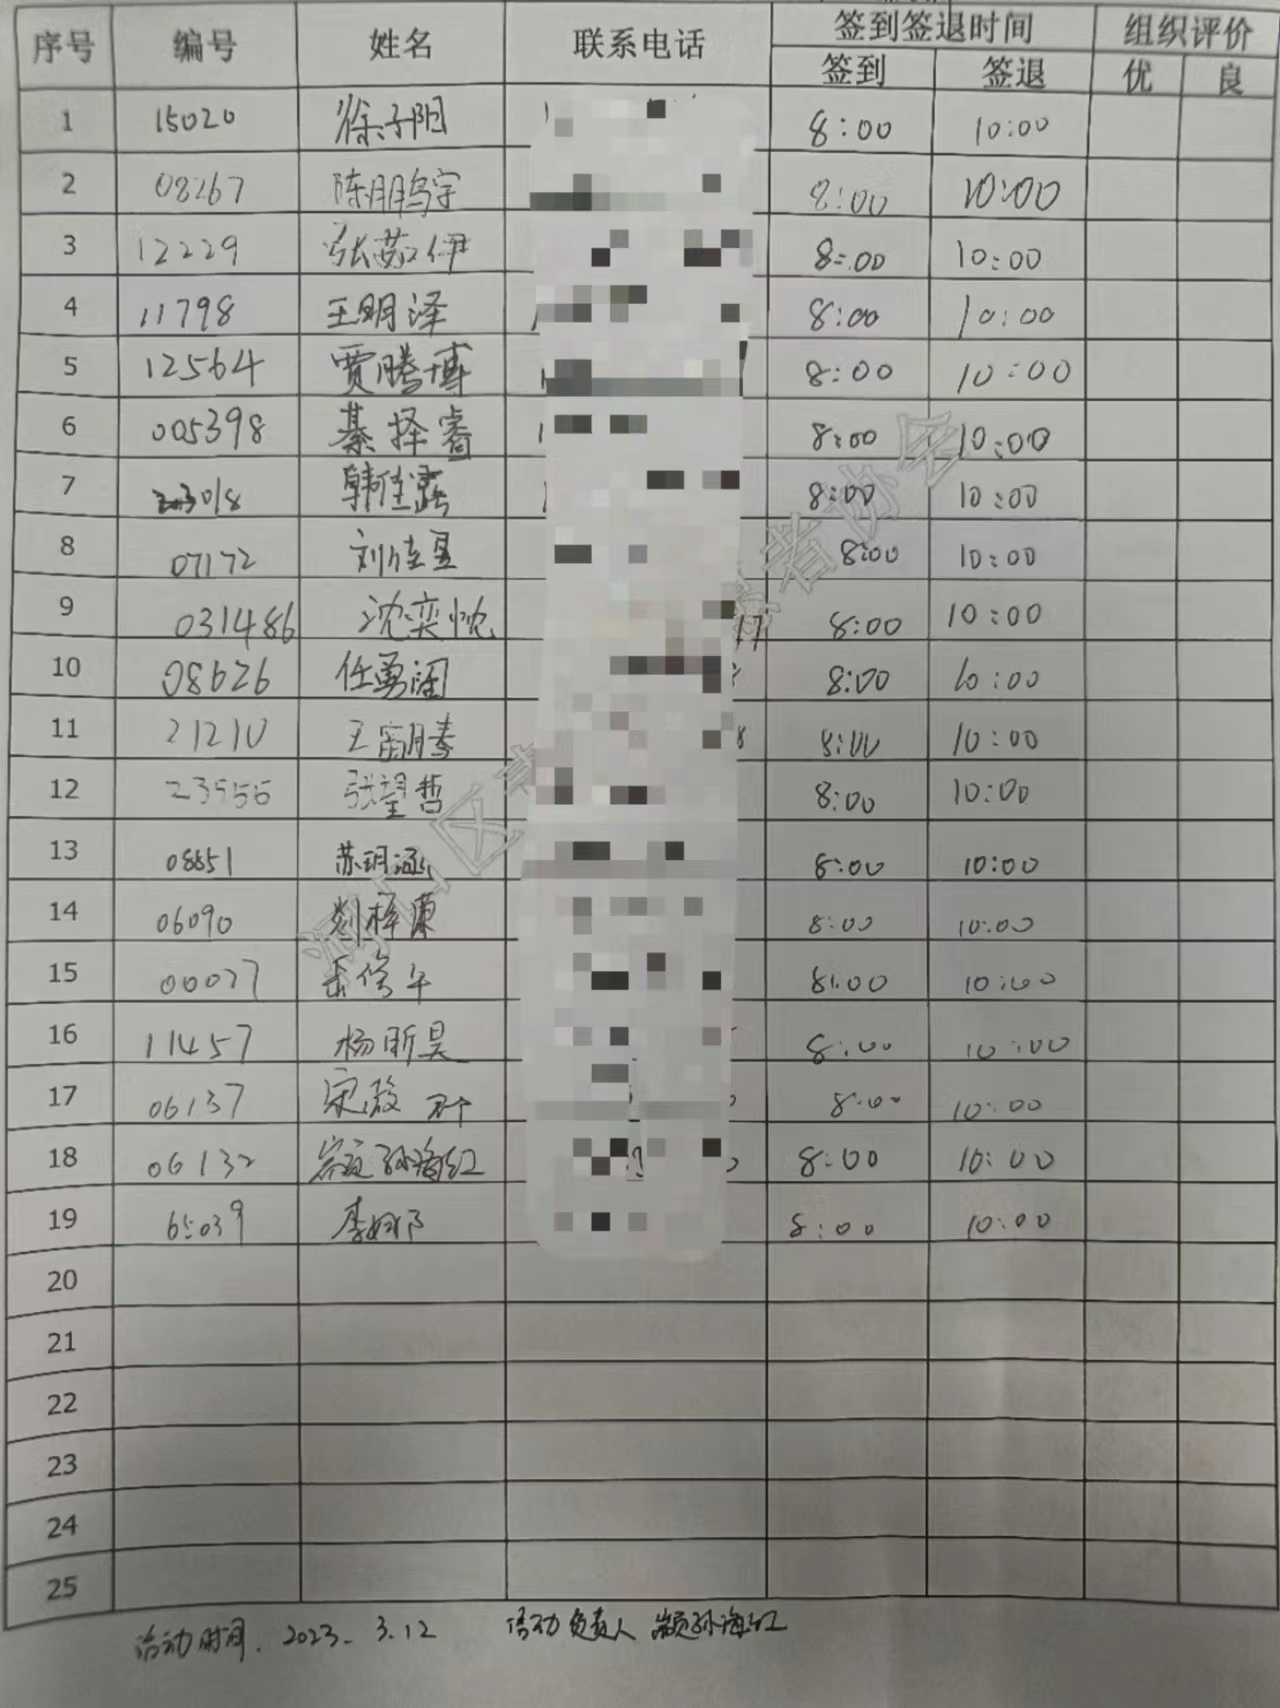 序号 编号 姓名 联系电话 签到签退时间 组织评价
签到 签退 优 良
1 15020 徐子阳 8:00 10:00
2 08267 陈鹏宇 8:00 10:00
3 12229 张苏伊 8:00 10:00
4 11798 王明泽 8:00 10:00
5 12564 贾腾博 8:00 10:00
6 005398 綦择睿 8:00 10:00
7 韩佳露 8:00 10:00
8 07172 刘佳昱 8:00 10:00
9 031486 沈奕忱 17 8:00 10:00
10 08626 任勇阔 8:00 10:00
11 21210 王 腾 8 8:00 10:00
12 23955 张望哲 8:00 10:00
13 08851 苏玥涵 8:00 10:00
14 06090 刘梓康 8:00 10:00
15 00027 8:00 10:00
16 11457 杨昕昊 8:00 10:00
17 06137 宋 8:00 10:00
18 06132 孙海红 8:00 10:00
19 65039 李 8:00 10:00
20
21
22
23
24
25
活动时间. 2023. 3.12 活动负责人 孙海红